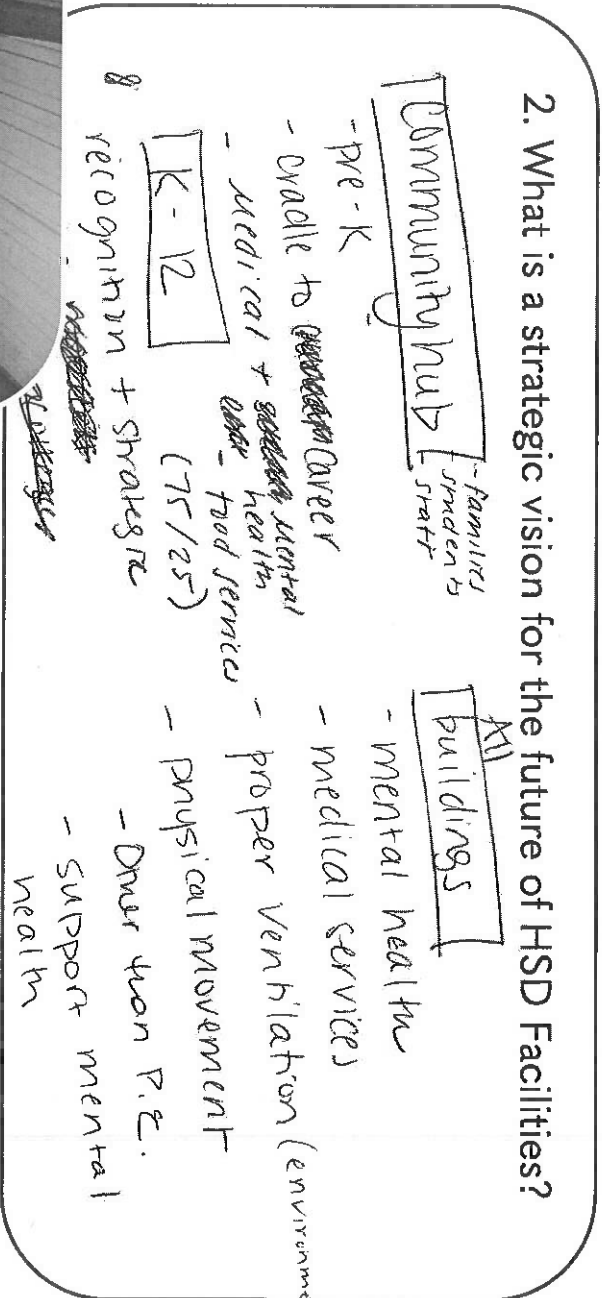 2. What is a strategic vision for the future of HSD Facilities?
Community hub
- families
students
staff
- pre-K
- cradle to career
- medical + mental
health
- food services
K-12
(75/25)
recognition + strategic
All
buildings
- mental health
- medical services
- proper ventilation (environme
- physical movement
- other than P.E.
- support mental
health